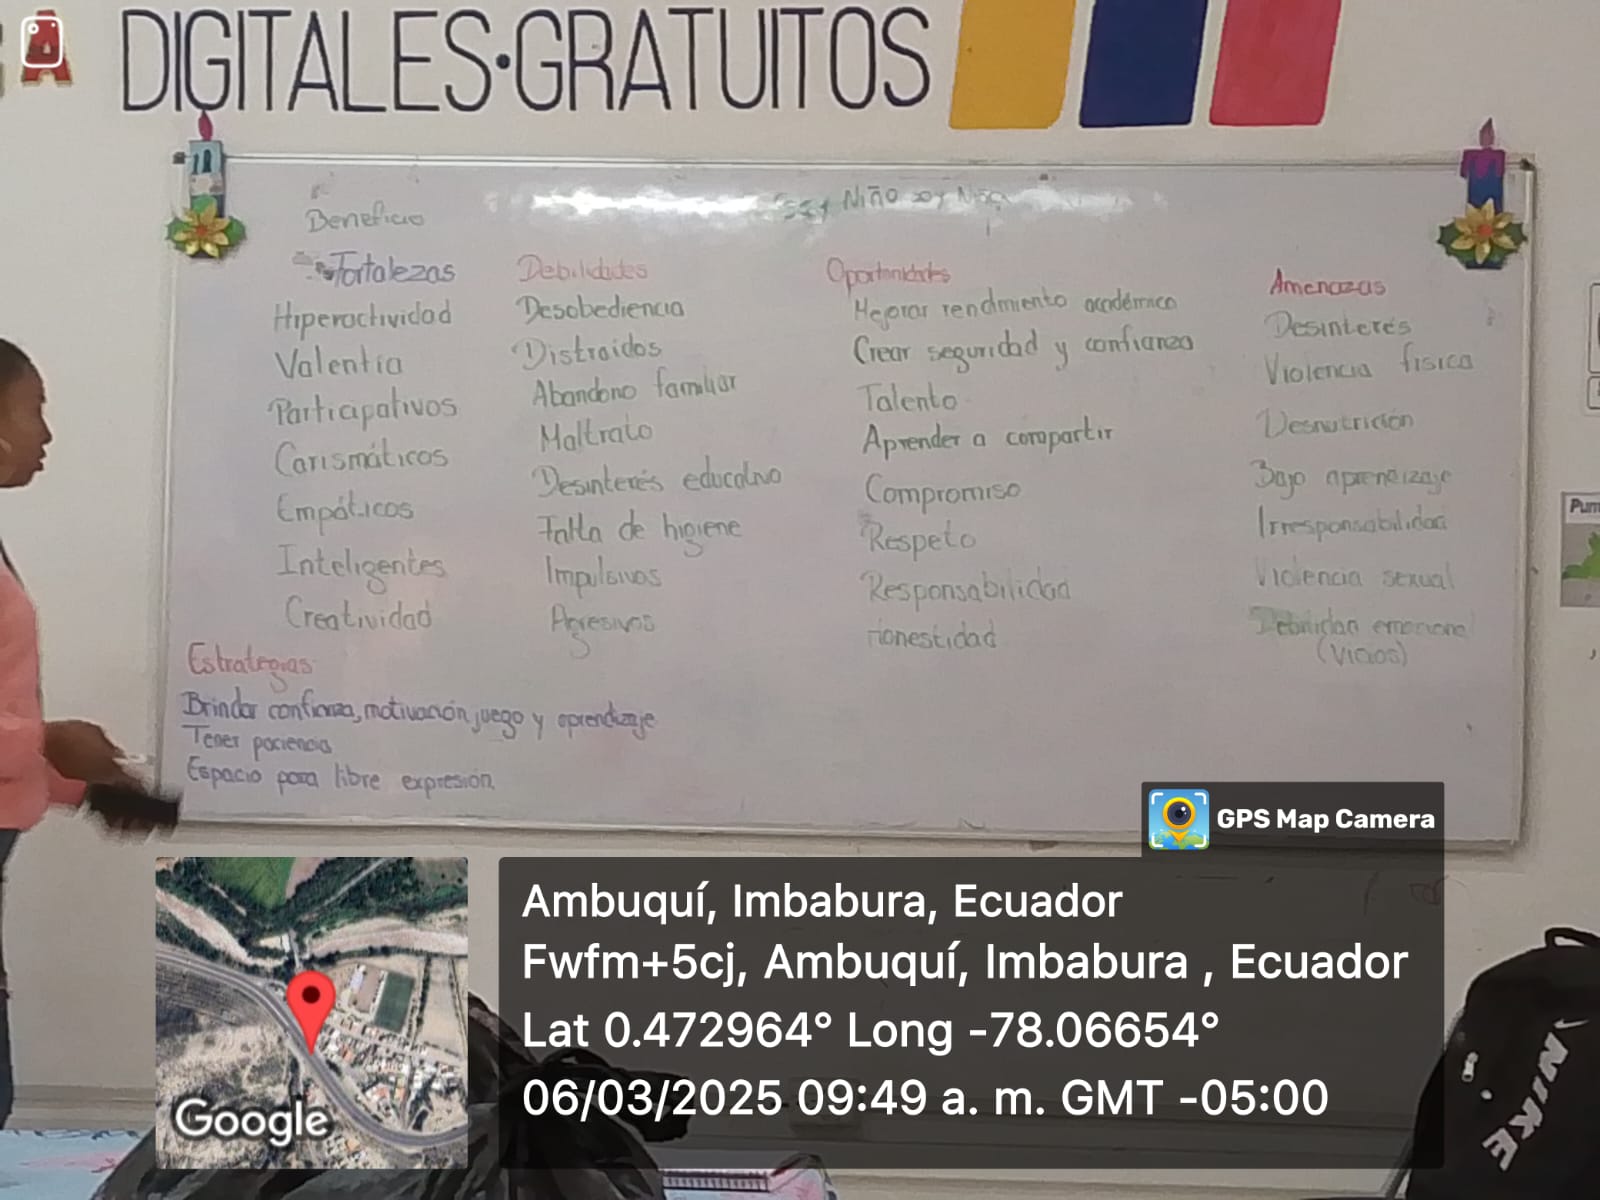 A DIGITALES·GRATUITOS
Soy Niño soy Niña
Beneficio
Fortalezas
Hiperactividad
Valentía
Participativos
Carismáticos
Empáticos
Inteligentes
Creatividad
Debilidades
Desobediencia
Distraidos
Abandono familiar
Maltrato
Desinterés educativo
Falta de higiene
Impulsivos
Agresivos
Oportunidades
Mejorar rendimiento académico
Crear seguridad y confianza
Talento
Aprender a compartir
Compromiso
Respeto
Responsabilidad
Honestidad
Amenazas
Desinterés
Violencia física
Desnutrición
Bajo aprendizaje
Irresponsabilidad
Violencia sexual
Debilidad emocional
(Vicios)
Estrategias
Brindar confianza, motivación, juego y aprendizaje
Tener paciencia
Espacio para libre expresión
GPS Map Camera
Ambuquí, Imbabura, Ecuador
Fwfm+5cj, Ambuquí, Imbabura , Ecuador
Lat 0.472964° Long -78.06654°
06/03/2025 09:49 a. m. GMT -05:00
Google
NIKE